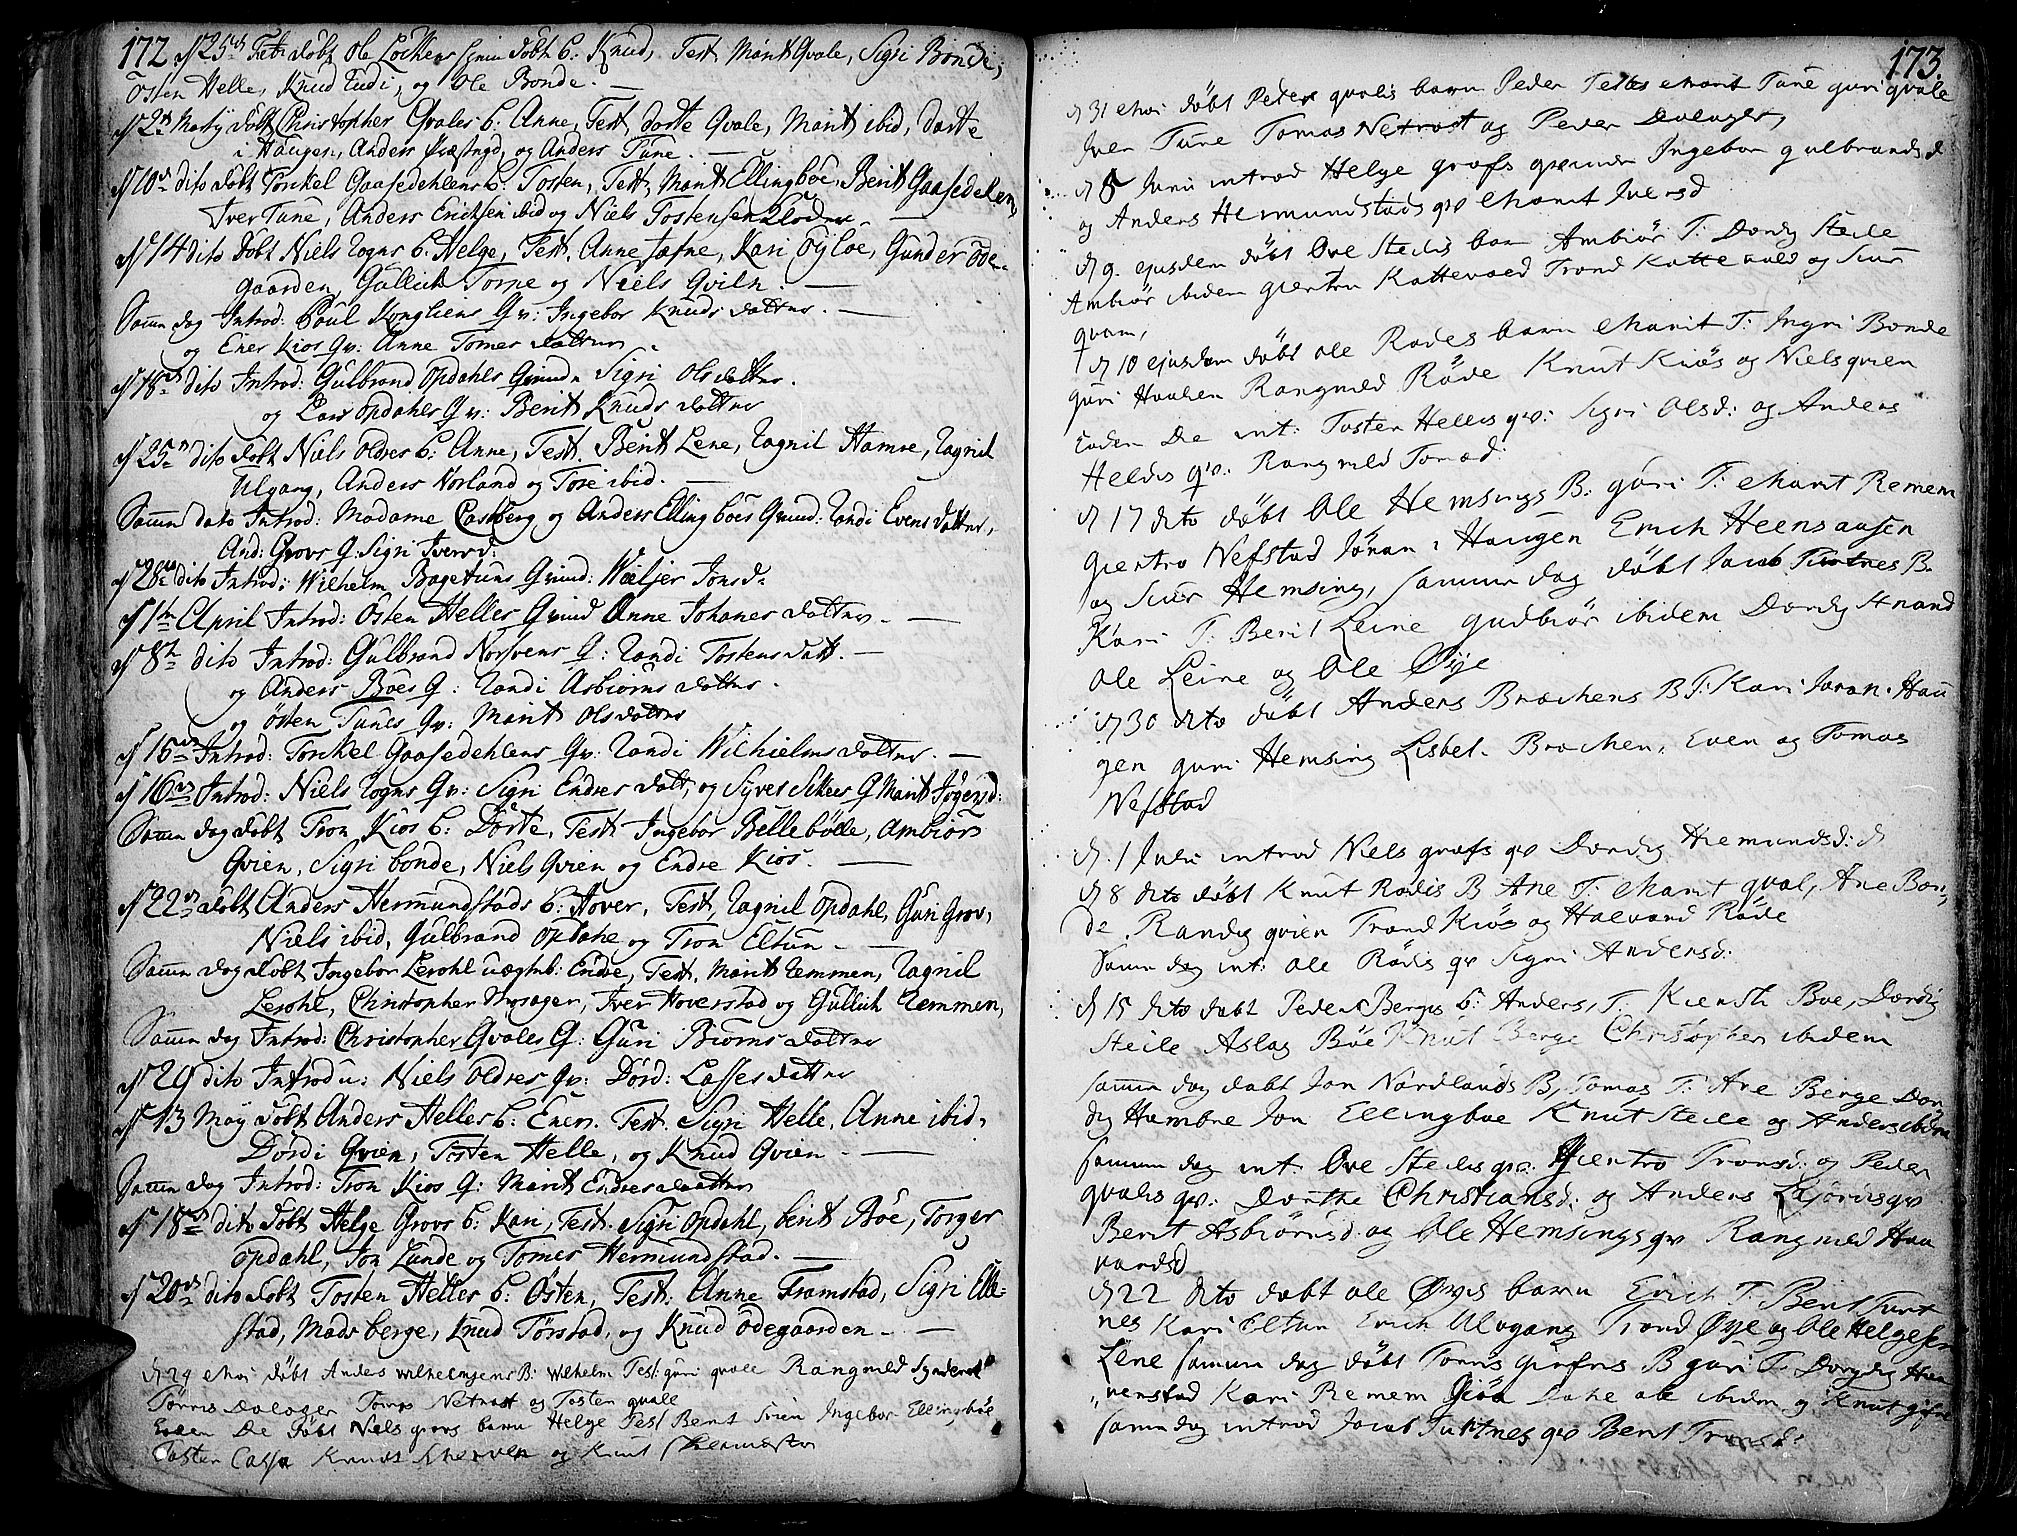 172 d 25de Febr døbt Ole Lockens Grinde døbt b: Knud, Test Marit Qvale, Sigri Bonde,
Østen Helle, Knud Eudi, og Ole Bonde.
d 2de Martij døbt Christopher Qvales b. Anne, Test, dorte Qvale, Marit ibid, dorte
i Haugen, Anders Præstegd, og Anders Tune.
d 10de dito døbt Torkel Gaasedehlens b. Tosten, Test, Marit Ellingboe, Berit Gaasedelen,
Iver Tune, Anders Erichsen ibid og Niels Tostensen
d 14 dito døbt Niels Rogns b. Helge, Test. Anne Jafne, Kari Øyloe, Gunder Øde-
gaarden, Gullich Torpe og Niels Qviln.
Samme dag Introd: Poul Kongliens Qv: Ingebor Knuds datter.
og Ener Kios Qv: Anne Tomes datter.
d 18de dito Introd: Gulbrand Opdahls Qvinde Sigri Olsdatter.
og Lars Opdahls Qv: Berit Knuds datter
d 25de dito døbt Niels Oldres b: Anne, Test. Berit Lene, Ragnil Hamre, Ragnil
Ulgang, Anders Norland og Tore ibid.
Samme dato Introd: Madame Castberg og Anders Ellingboes Qvind: Randi Evens datter,
And: Grovs Q: Sigri Iversd:
d 28de dito Introd: Wilhelm Bagetuns Qvind: Wæljer Jonsd.
d 1te April Introd: Østen Helles Qvind Anne Johanes datter.
d 8de dito Introd: Gulbrand Norsvens Q: Randi Tostens datt.
og Anders Boes Q: Randi Asbiørns datter.
og Østen Tunes Qv: Marit Olsdatter
d 15de Introd: Torkel Gaasedehlens Qv: Randi Wilhielmsdatter.
d 16de Introd: Niels Rogns Qv: Sigri Endres datt, og Syver Q Marit
Samme dag døbt Tron Kios b: Dorte, Test Ingebor Belleboele, Ambiør
Qvien, Sigri bonde, Niels Qvien og Endre Kios.
d 22de døbt Anders Hermundstads b: Hover, Test, Ragnil Opdahl, Guri Grov,
Niels ibid, Gulbrand Opdahe og Tron Eltun.
Samme dag døbt Ingebor Lerohl uægtb: Endre, Test, Marit Remmen, Ragnil
Lerohl, Christopher, Iver Hoverstad og Gullich Remmen,
Samme dag Introd: Christopher Qvales Q: Guri Biørns datter
d 29 dito Introdu: Niels Oldres Qv: Dørd: Lasses datter
d 13 May døbt Anders Helles b: Ener. Test. Sigri Helle, Anne ibid,
Dordi Qvien, Tosten Helle, og Knud Qvien
Samme dag Introd: Tron Kios Q: Marit Endresdatter
d 18de dito døbt Helge Grovs b: Kari, Test. Sigri Opdahl, berit Böe, Torger
Opdahl, Jon Lunde og Tomes Hermundstad.
d 20de dito døbt Tosten Helles b: Østen, Test: Anne Framstad, Sigri Elle-
stad, Mads berge, Knud Torstad, og Knud Ødegaarden
d 29 Mai døbt Anders Wilhelmsens B: Wilhelm Test: guri qvale Rangnild
Torris Dalager Tomas Netrost og Tosten qvale
Eodem Die døbt Niels grovs barn Helge Test Berit Ingebor Ellingböe
Tosten Knud og Knut
173.
d 31 Maj döbt Peder qvalis barn Peder Testes Marit Tune guri qvale
Iver Tune Tomas Netrost og Peder Dalager,
d 5 Juni introd Helge grofs qvinde Ingebor gulbrandsd
og Anders Hermundstads qv Marit Iversd
d 9. ejusdem döbt Ove Steilis barn Ambiör T: Dordij Steile
Ambiör ibidem gientru Kattevold Trond Kattevold og Siur
qvam,
d 10 ejusdem döbt ole Rødes barn Marit T: Ingri Bonde
guri Haalien Rangnild Röde Knut Kiös og Niels qvien
Eodem Die int: Tosten Helles qv: Sigri Olsd: og Anders
Heldis qv: Rangnild Tomæd:
d 17 dito döbt Ole Hemsings B: guri T: Marit Remem
gientro Nefstad Jöran i Haugen Erich Heensausen
og Siur Hemsing, samme dag döbt Jacob Turtnes B.
Kari T: Berit Leine gudbiör ibidem Dordij Strand
Ole Leine og Ole Øije
d 30 dito döbt Anders Bræchens B T: Kari Jaran i Hau
gen guri Hemsing Lisbet Brachen, Even og Tomas
Nefstad
d. 1 Juli introd Niels grøfs qv Dordij Hiemundsd: d
d 8 dito döbt Knut Rødis B Ane T: Marit qval, Ane Bon,
de. Randij qvien Trond Kiös og Halvard Röde
Samme dag int: Ole Rødis qv Sigri Andersd:
d 15 dito døbt Peder Bergis b: Anders, T: Kiersti Boe, Dordij
Steile Aslag Böe Knut Berge Christopher ibidem
samme dag døbt Jon Nordlands B, Tomas T: Ane Berge Dor
dij Hambre Jon Ellingboe Knut Steile og Anders ibidem
samme dag int: Ove Steilis qv: Gientro Tronsd: og Peder
qvalis qv: Dorthe Christiansd: og Anders qv
Berit Asbiörnsd: og Ole Hemsings qv Rangnild Haa
vardsd
d 22 dito døbt ole Øies barn Erich T: Berit Turt
nes Kari Eltun Erich Ulvgang Trond Øye og Ole Helgesen
Leine samme dag döbt Torris B guri T: Dordij Haa
"venstad Kari Remem Giöa Dahe ole ibidem og Knut
samme dag introd Jacob Turtnes qv Berit Tronsd: